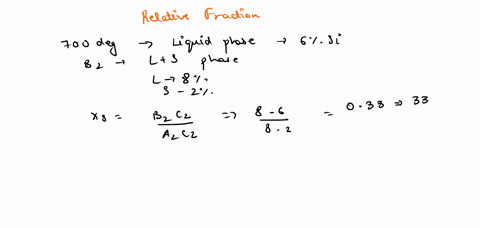 Relative Fraction
700 deg → Liquid phase → 6% Si
B2 → L+S phase
L → 8%
S - 2%
xs = B2 C2 / A2 C2 => 8-6 / 8-2 = 0.33 ⇒ 33